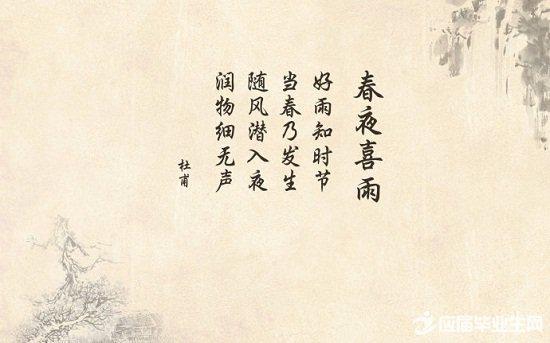 春夜喜雨
好雨知时节
当春乃发生
随风潜入夜
润物细无声
杜甫
应届毕业生网